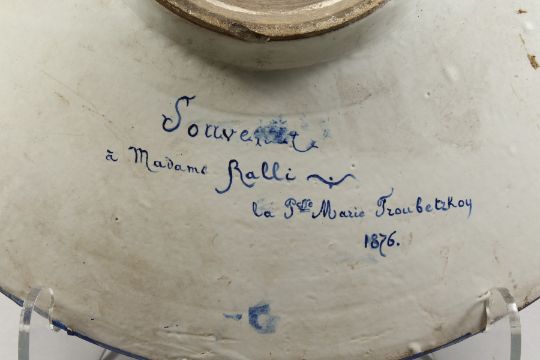 Souvenir
à Madame Ralli
la Psse Marie Troubetzkoy
1876.